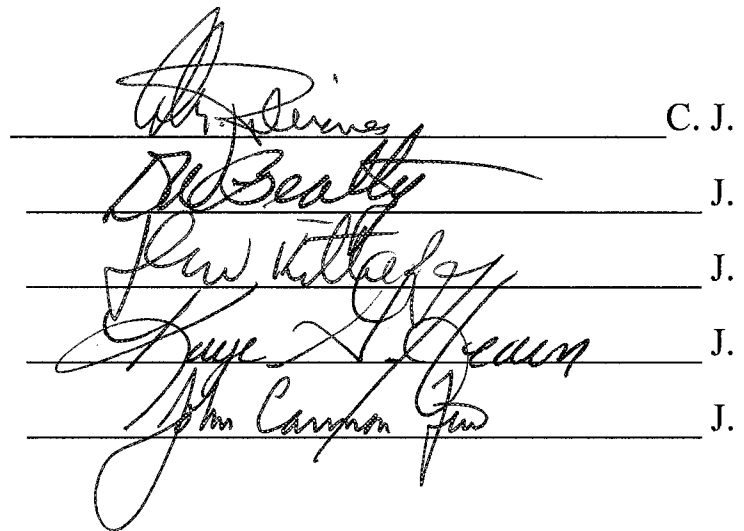 C. J.
DWBeatty J.
J.
Kaye G. Hearn J.
John Cannon Few J.